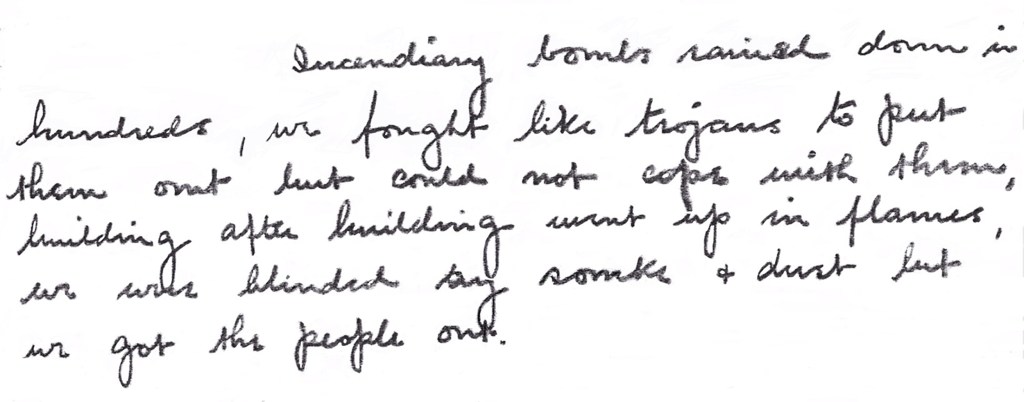 Incendiary bombs rained down in
hundreds, we fought like trojans to put
them out but could not cope with them,
building after building went up in flames,
we were blinded by somke + dust but
we got the people out.